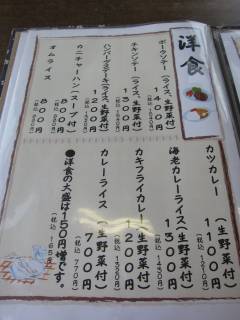 洋食
ポークソテー(ライス、生野菜付)
1400円
(税込 1540円)
チキンソテー(ライス、生野菜付)
1300円
(税込 1430円)
ハンバーグステーキ(ライス、生野菜付)
1200円
(税込 1320円)
カニチャーハン(スープ付)
800円
(税込 880円)
オムライス
800円
(税込 880円)
カツカレー(生野菜付)
1100円
(税込 1210円)
海老カレーライス(生野菜付)
1300円
(税込 1430円)
カキフライカレー(生野菜付)
1200円
(税込 1320円)
カレーライス(生野菜付)
700円
(税込 770円)
●洋食の大盛は150円増です。
(税込 165円)